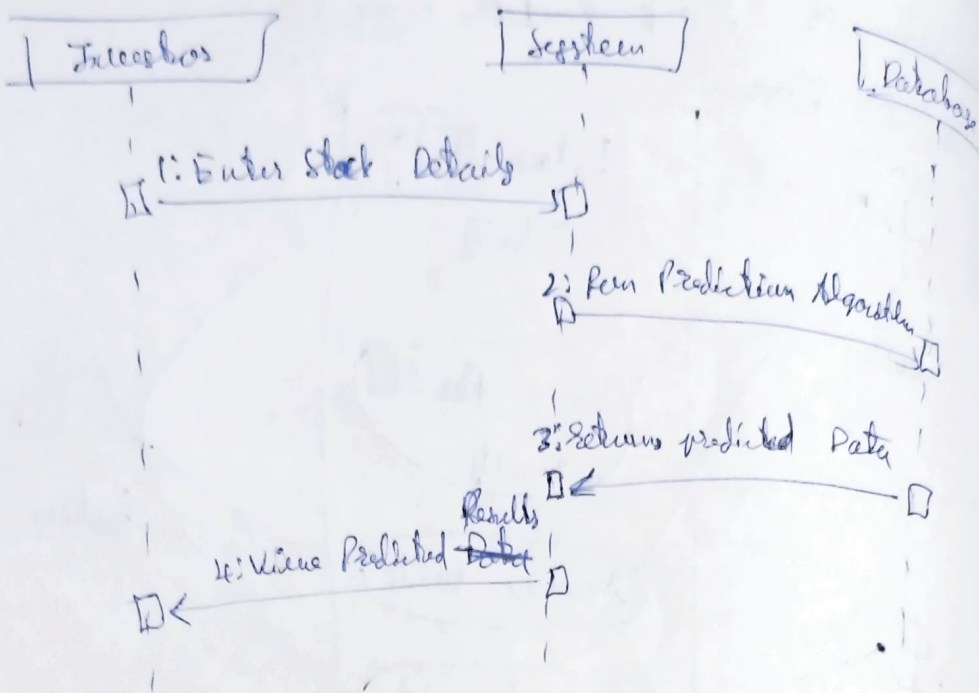 Investor
System
Database
1: Enter Stock Details
2: Run Prediction Algorithm
3: returns predicted Data
Results
4: View Predicted Data